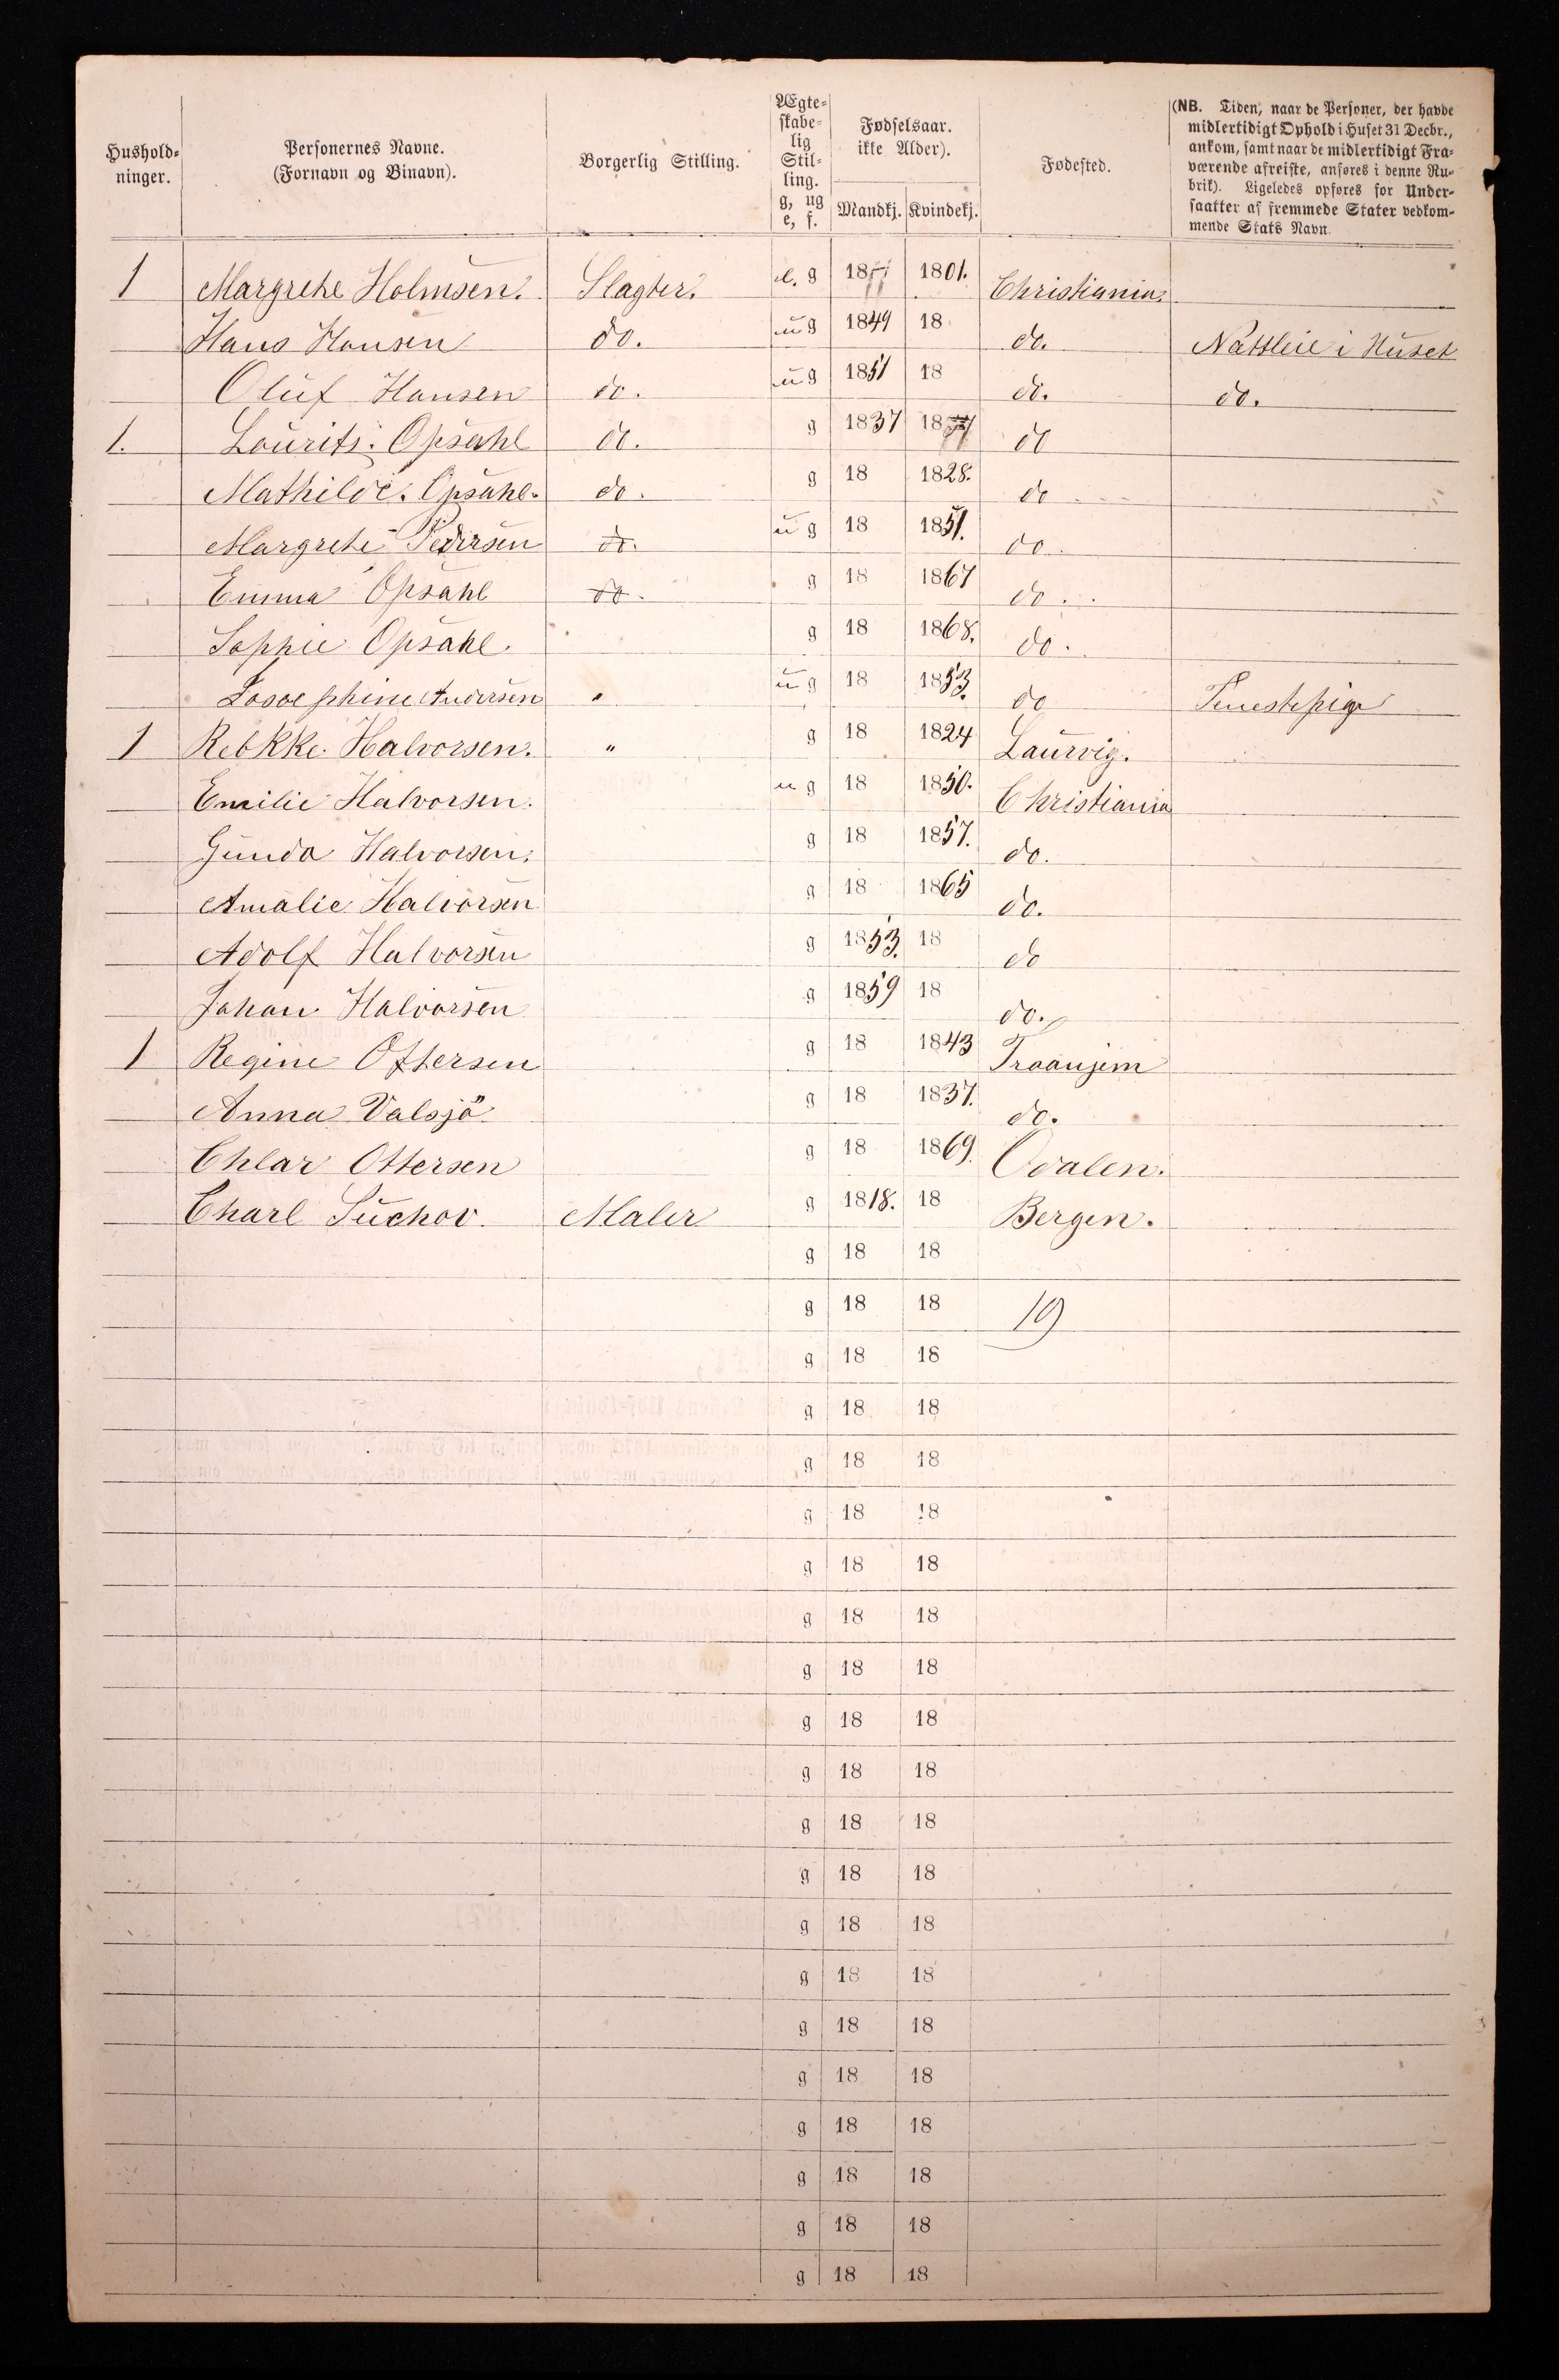 Hushold-ninger. | Personernes Navne. (Fornavn og Binavn). | Borgerlig Stilling. | Ægte-skabe-lig Stil-ling. g, ug e, f. | Fødselsaar. ikke Alder). Mandkj. Kvindekj. | Fødested. | (NB. Tiden, naar de Personer, der havde midlertidigt Ophold i Huset 31 Decbr., ankom, samt naar de midlertidigt Fra-værende afreiste, anføres i denne Ru-brik). Ligeledes opføres for Under-saatter af fremmede Stater vedkom-mende Stats Navn.
1 Margrethe Holmsen. Slagter. e. g 18 1801. Christiania.
Hans Hansen do. ug 1849 18 do. Nattleie i Huset
Oluf Hansen do. ug 1851 18 do. do.
1. Laurits. Opsahl do. g 1837 18 do
Mathilde. Opsahl. do. g 18 1828. do
Margrethe Pedersen do. ug 18 1851. do.
Emma Opsahl do. g 18 1867 do.
Sophie Opsahl. g 18 1868. do.
Josoephine Andersen " ug 18 1853. do Tenestepige
1 Rebkke. Halvorsen. " g 18 1824 Laurvig.
Emilie Halvorsen. ug 18 1850. Christiania
Gunda Halvorsen. g 18 1857. do.
Amalie Halvorsen g 18 1865 do.
Adolf Halvorsen g 1853. 18 do
Johan Halvorsen g 1859 18 do.
1 Regine Ottersen g 18 1843 Troanjem
Anna Valsjö g 18 1837. do.
Chlar Ottersen g 18 1869. Odalen.
Charl Suchov. Maler g 1818. 18 Bergen.
g 18 18
g 18 18 19
g 18 18
g 18 18
g 18 18
g 18 18
g 18 18
g 18 18
g 18 18
g 18 18
g 18 18
g 18 18
g 18 18
g 18 18
g 18 18
g 18 18
g 18 18
g 18 18
g 18 18
g 18 18
g 18 18